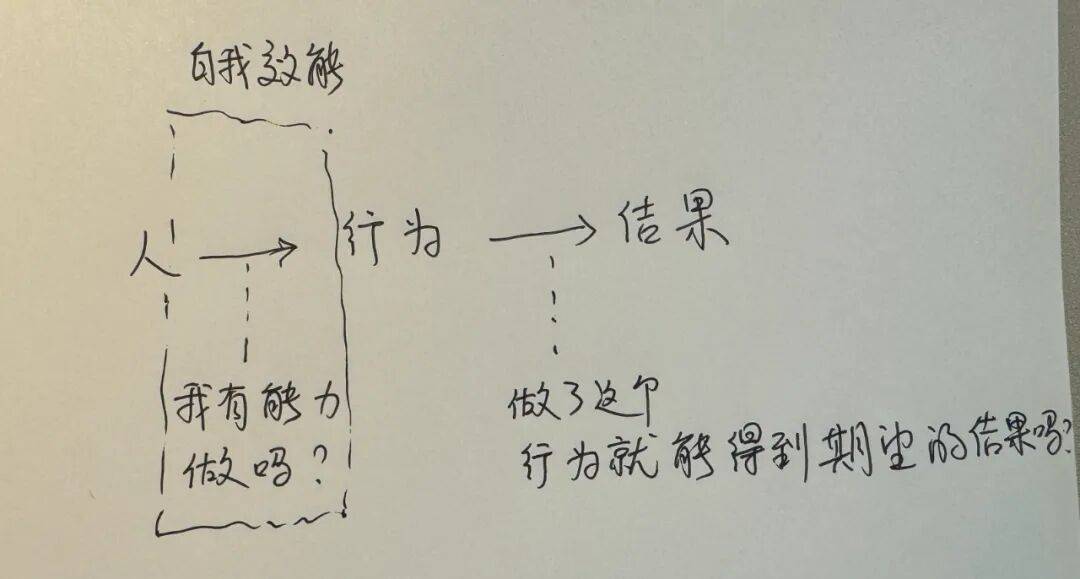 自我效能
人 → 行为 → 结果
我有能力
做吗?
做了这个
行为就能得到期望的结果吗?